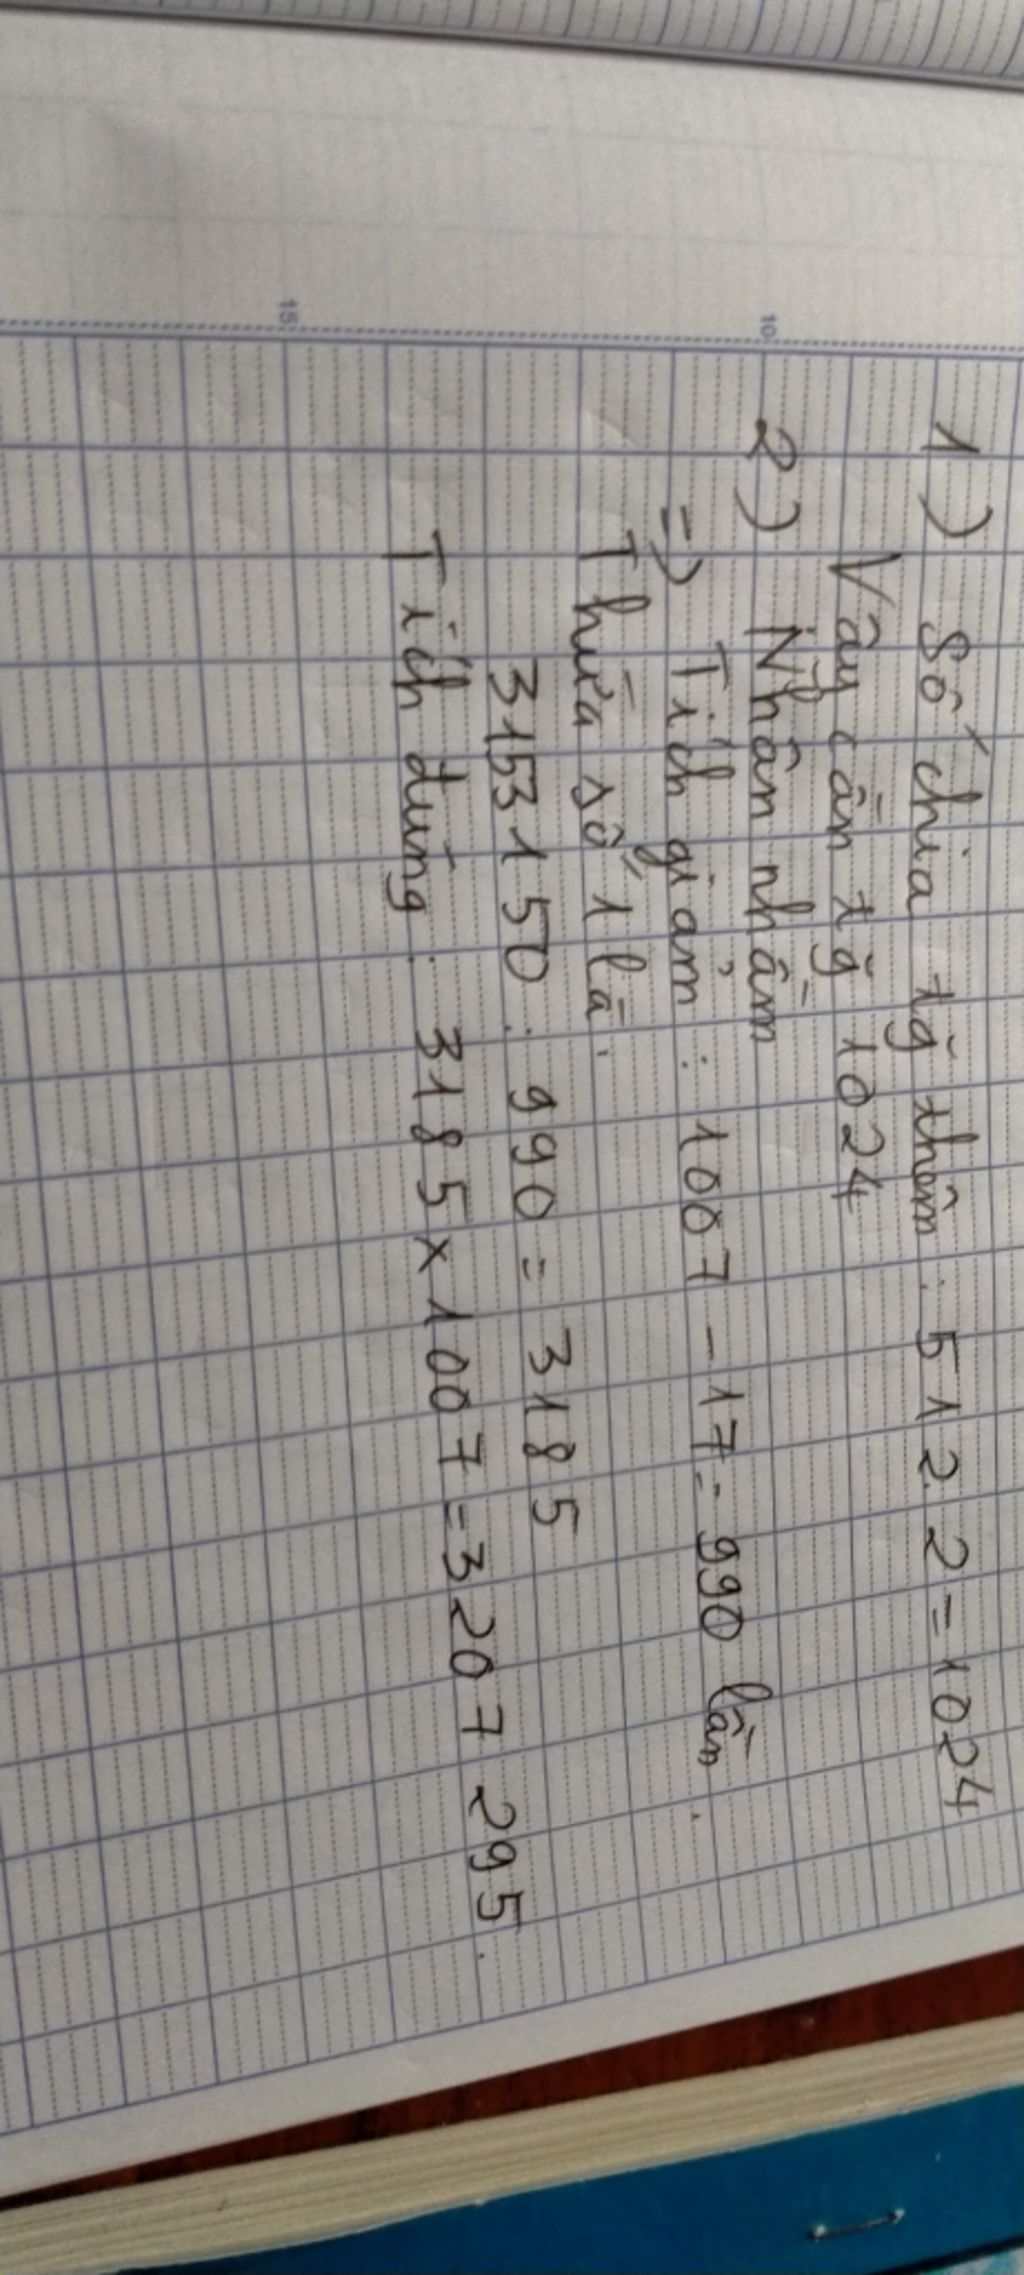 1) Số chia tg thêm : 512.2=1024
Vậy cần tg 1024
2) Nhân nhầm
=> Tích giảm : 1007 - 17 = 990 lần.
Thừa số 1 là :
3153150 : 990 = 3185
Tích đúng : 3185 x 1007 = 3207 295.
10
15